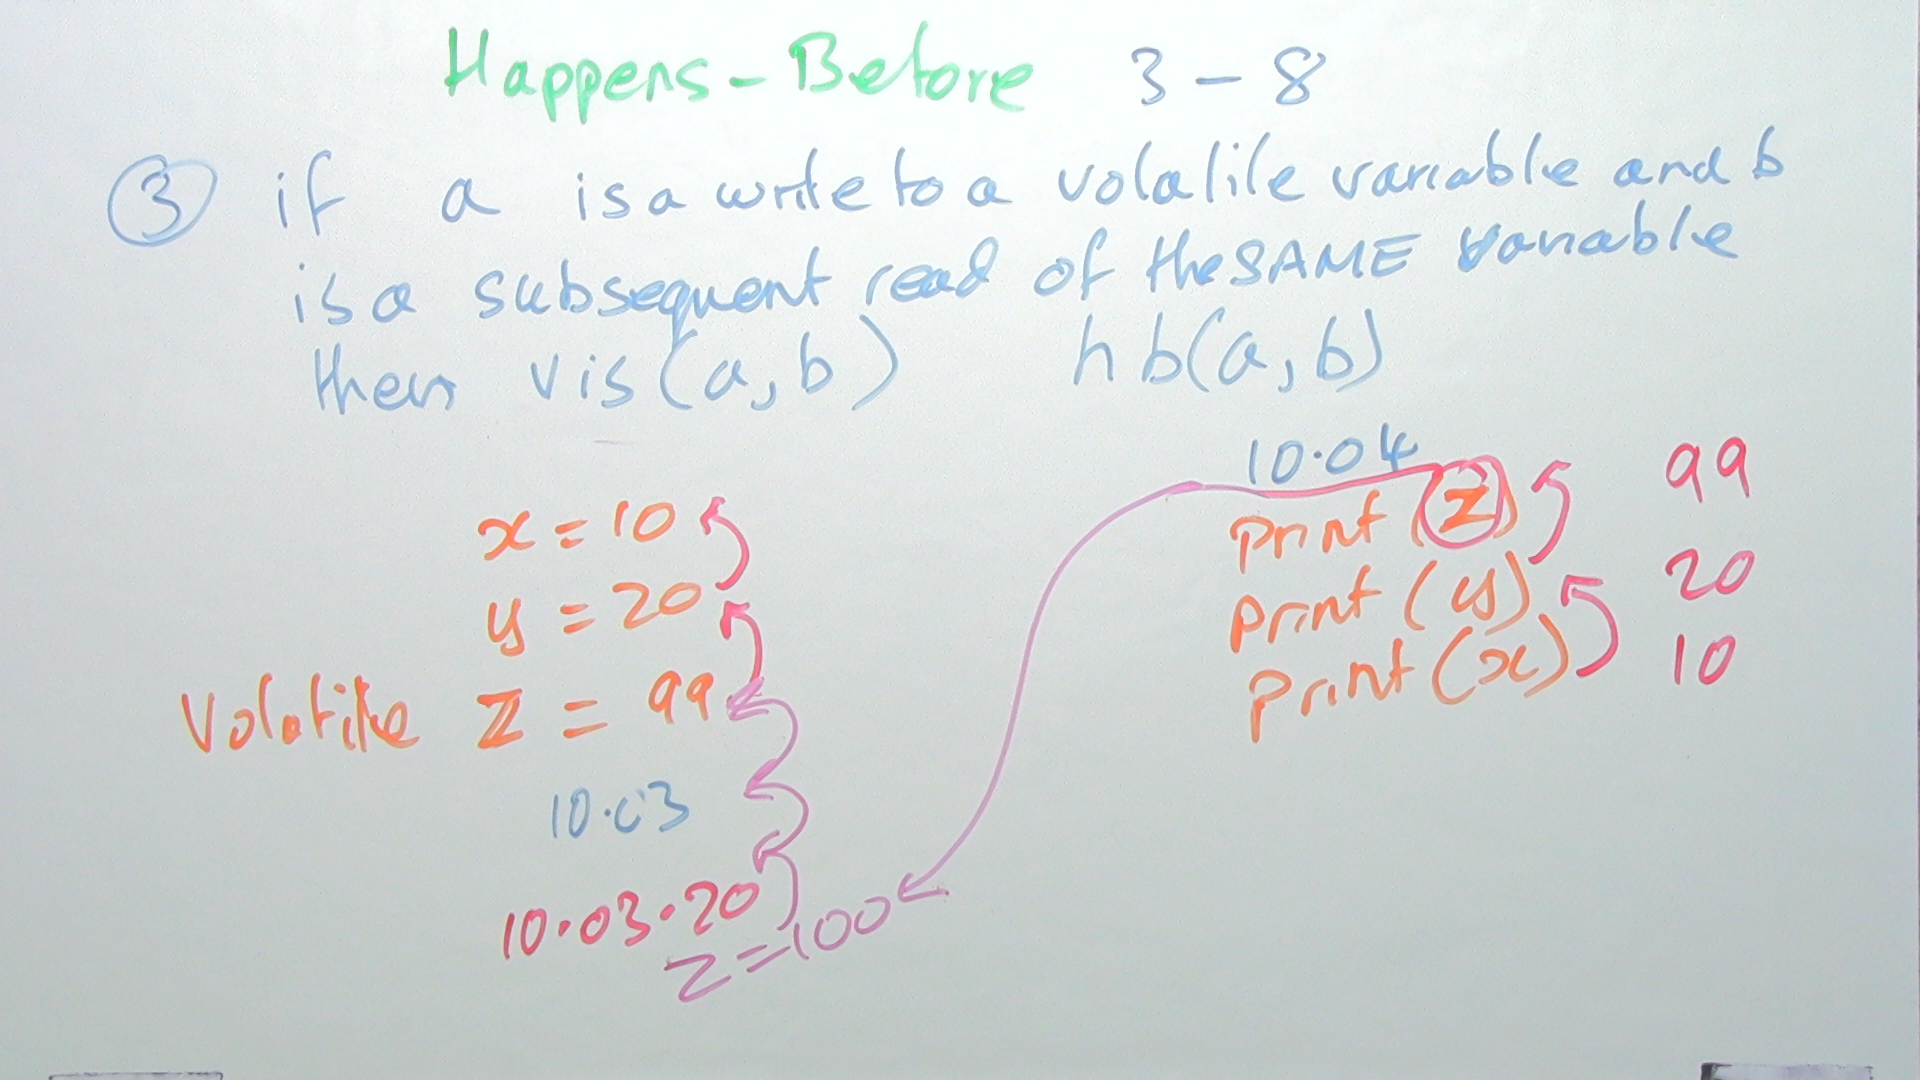 Happens-Before 3-8
③ if a is a write to a volatile variable and b
is a subsequent read of the SAME variable
then vis(a,b) hb(a,b)
x = 10
y = 20
Volatile z = 99
10.03
10.03.20
z=100
10.04
print (z) 99
print (y) 20
print (x) 10